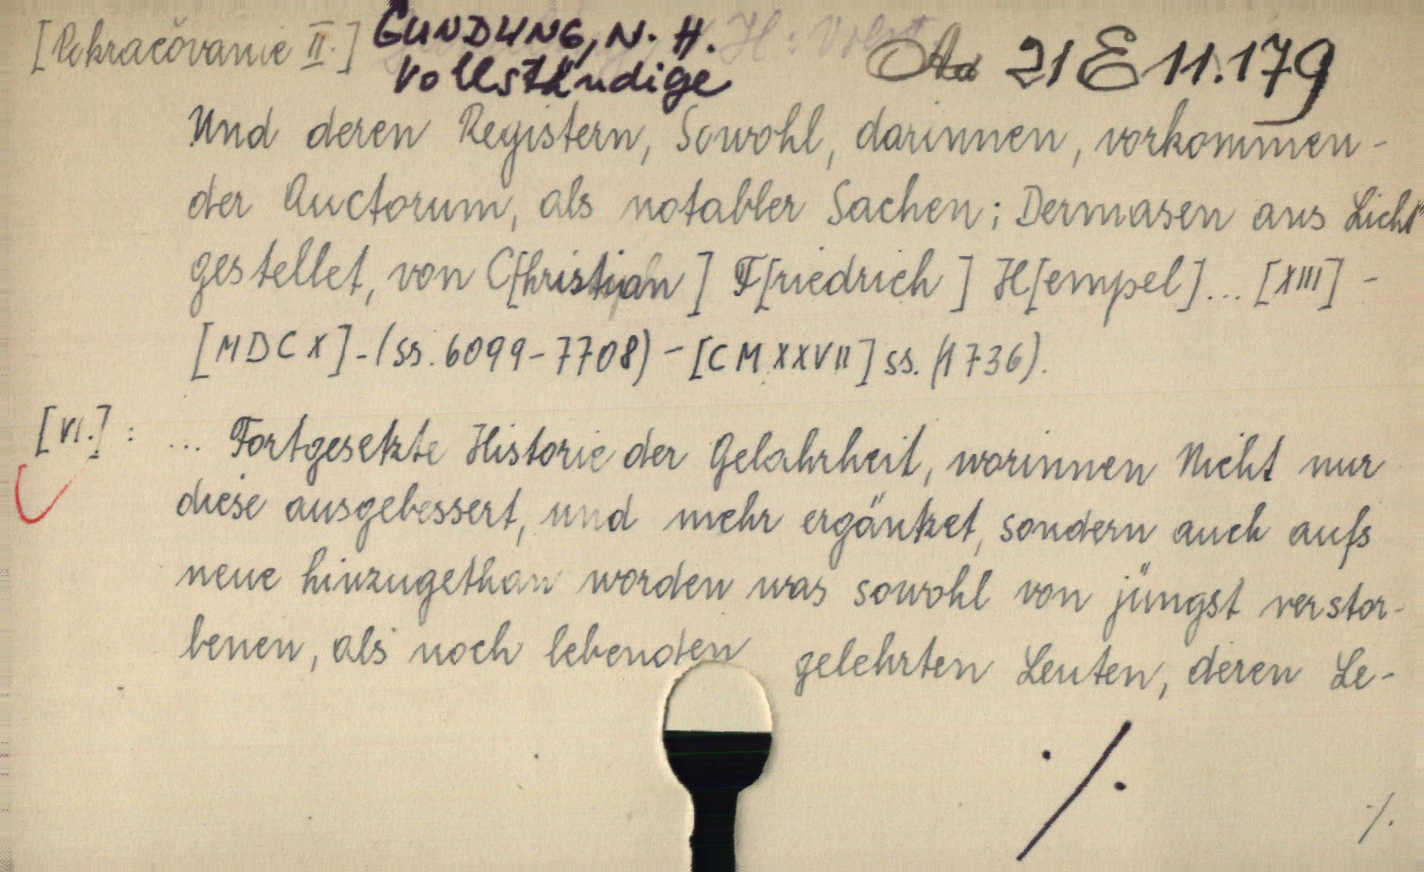 [Pokračovanie II.] GUNDUNG, N. H. Ad 21 E 11.179
Vollständige
Und deren Registern, Sowohl, darinnen, vorkommen-
der Auctorum, als notabler Sachen; Dermasen ans Licht
gestellet, von C[hristian] F[riedrich] H[empel]... [XIII] -
[MDCX] - (ss. 6099-7708) - [CMXXVII] ss. (1736).
[VI.] : ... Fortgesetzte Historie der Gelahrheit, worinnen Nicht nur
diese ausgebessert, und mehr ergäntzet, sondern auch aufs
neue hinzugethan worden was sowohl von jüngst verstor-
benen, als noch lebenden gelehrten Leuten, deren Le-
./.
./.